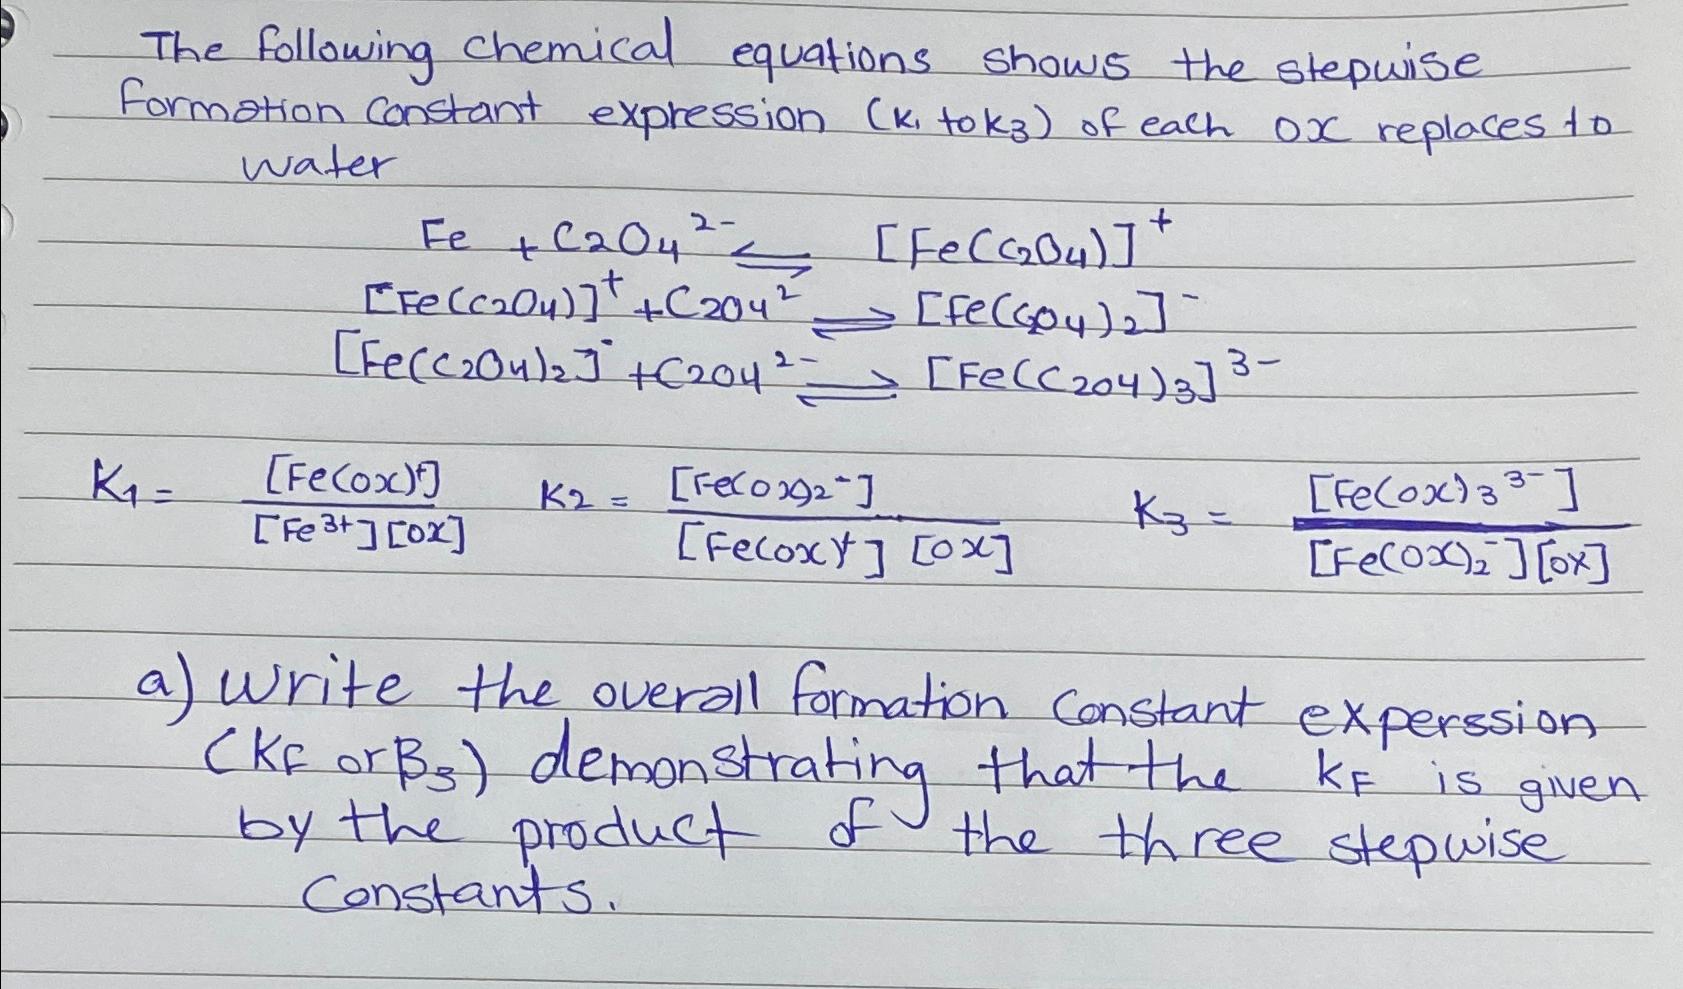 The following chemical equations shows the stepwise
formation constant expression (K1 to K3) of each ox replaces to
water
Fe + C2O4 2- ⇌ [Fe(C2O4)]+
[Fe(C2O4)]+ + C2O4 2 ⇌ [Fe(C2O4)2]-
[Fe(C2O4)2]- + C2O4 2- ⇌ [Fe(C2O4)3]3-
K1 = [Fe(ox)+] / [Fe3+][ox] K2 = [Fe(ox)2-] / [Fe(ox)+][ox] K3 = [Fe(ox)3 3-] / [Fe(ox)2-][ox]
a) write the overall formation constant experssion
(KF or β3) demonstrating that the KF is given
by the product of the three stepwise
constants.